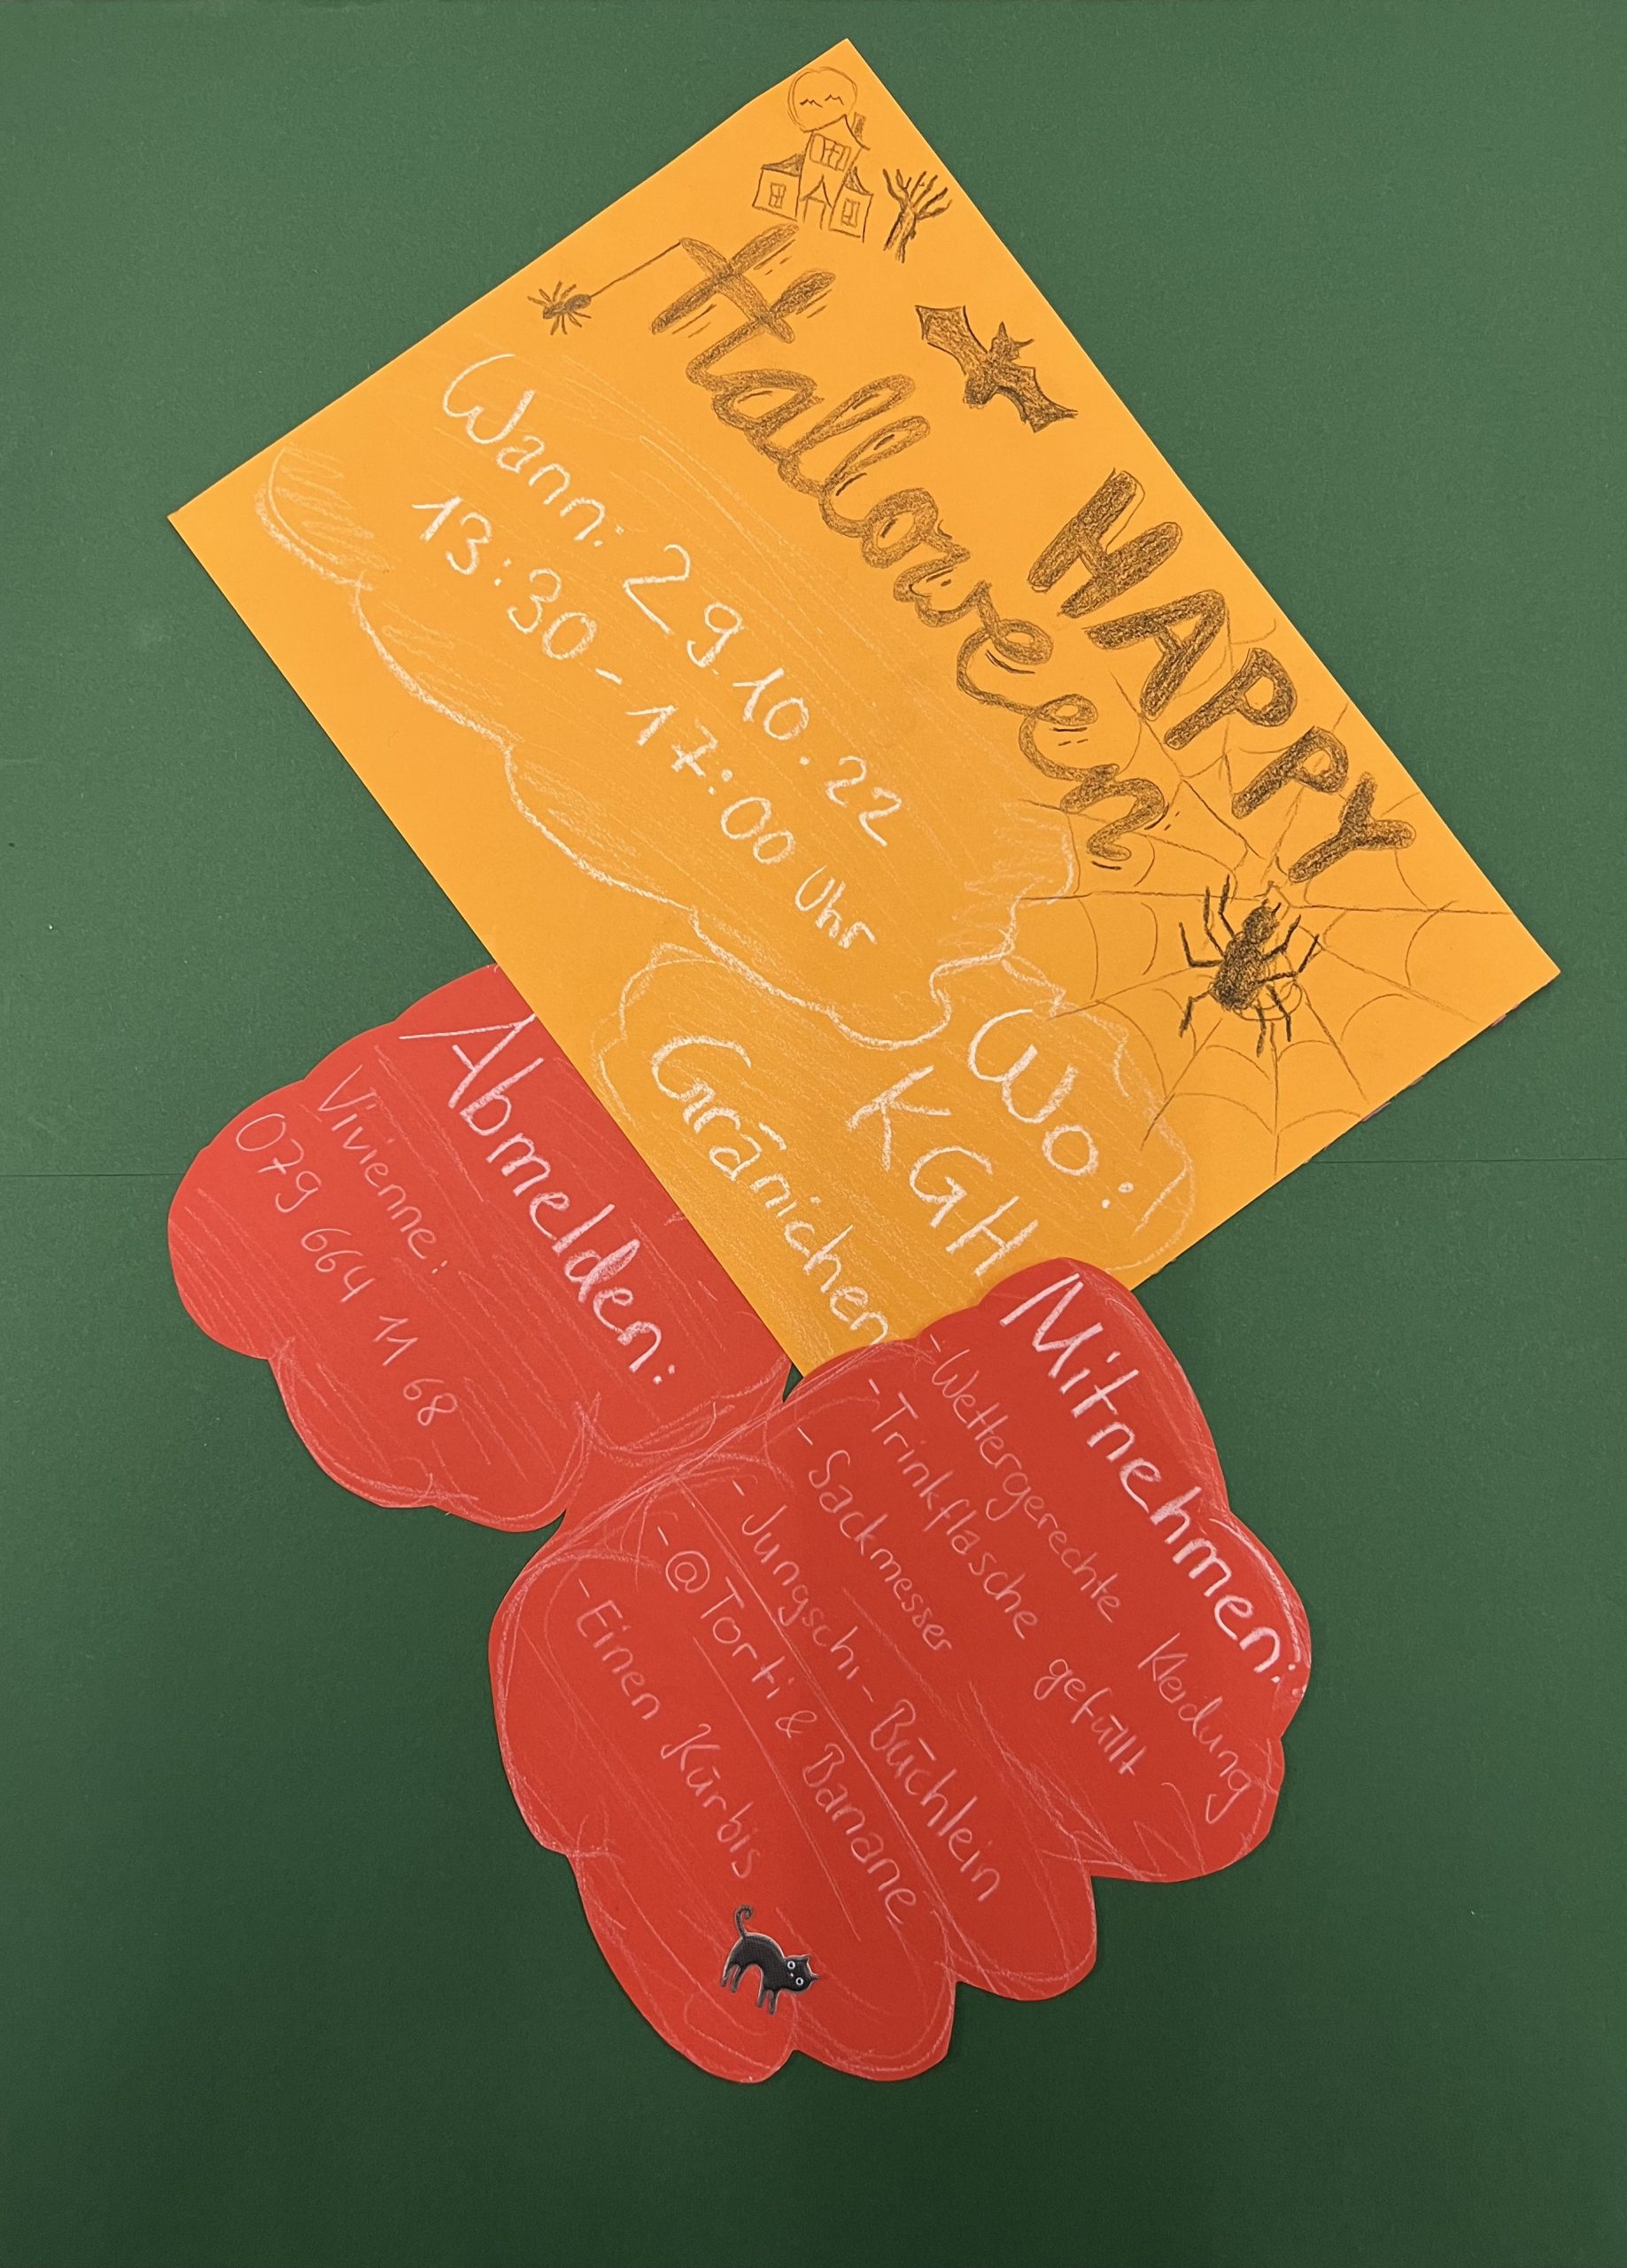 HAPPY
Halloween
Wann: 29.10.22
13:30 - 17:00 Uhr
Wo:
KGH
Gränichen
Abmelden:
Vivienne:
079 664 11 68
Mitnehmen:
- Wettergerechte Kleidung
- Trinkflasche gefüllt
- Sackmesser
- Jungschi-Büchlein
- @Torti & Banane
- Einen Kürbis